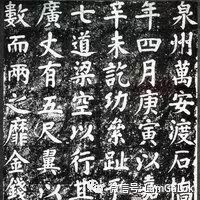 泉州萬安渡石橋
年四月庚寅以嘉
辛未訖功絫趾
七道梁空以行其
廣丈有五尺翼以
數而兩之靡金錢
微信号: